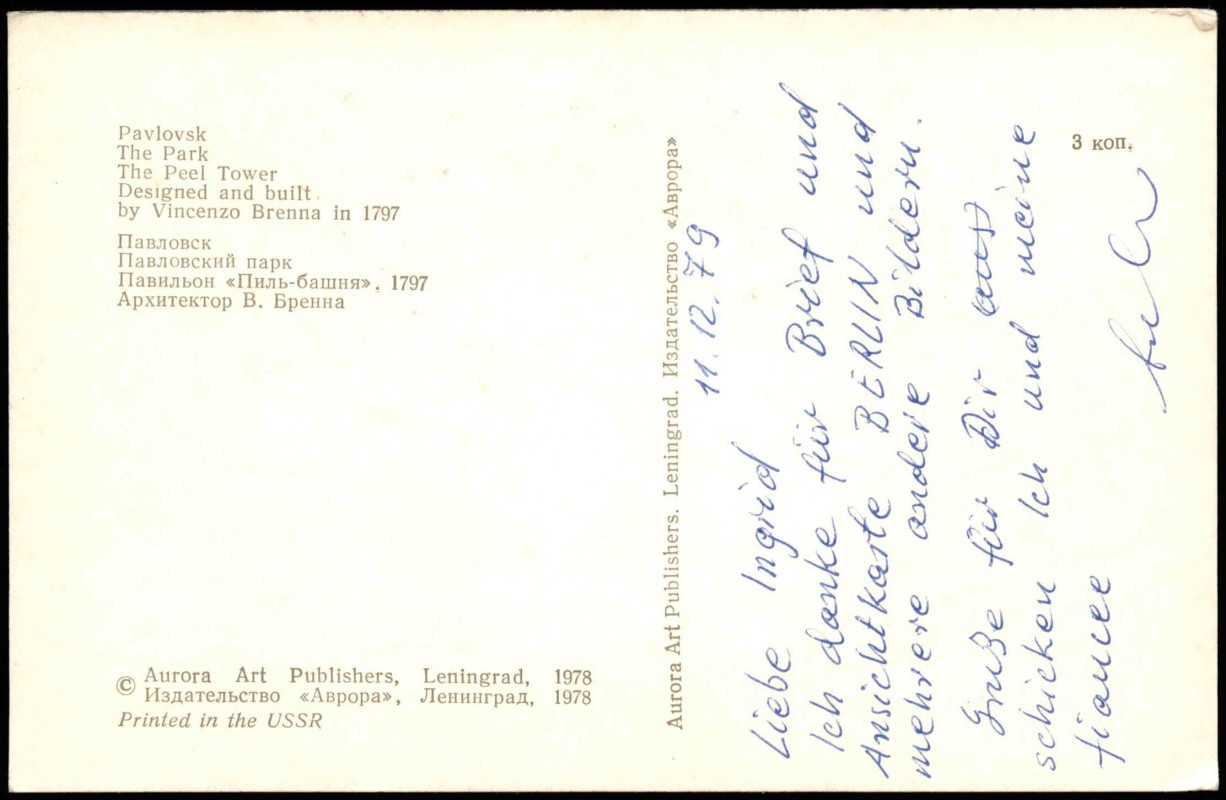 Pavlovsk
The Park
The Peel Tower
Designed and built
by Vincenzo Brenna in 1797
Павловск
Павловский парк
Павильон «Пиль-башня». 1797
Архитектор В. Бренна
© Aurora Art Publishers, Leningrad, 1978
Издательство «Аврора», Ленинград, 1978
Printed in the USSR
Aurora Art Publishers. Leningrad. Издательство «Аврора»
3 коп.
11.12.79
Liebe Ingrid
Ich danke für Brief und
Ansichtkarte BERLIN und
mehrere andere Bildern.
Gruße für Dir
schicken Ich und meine
fiancee